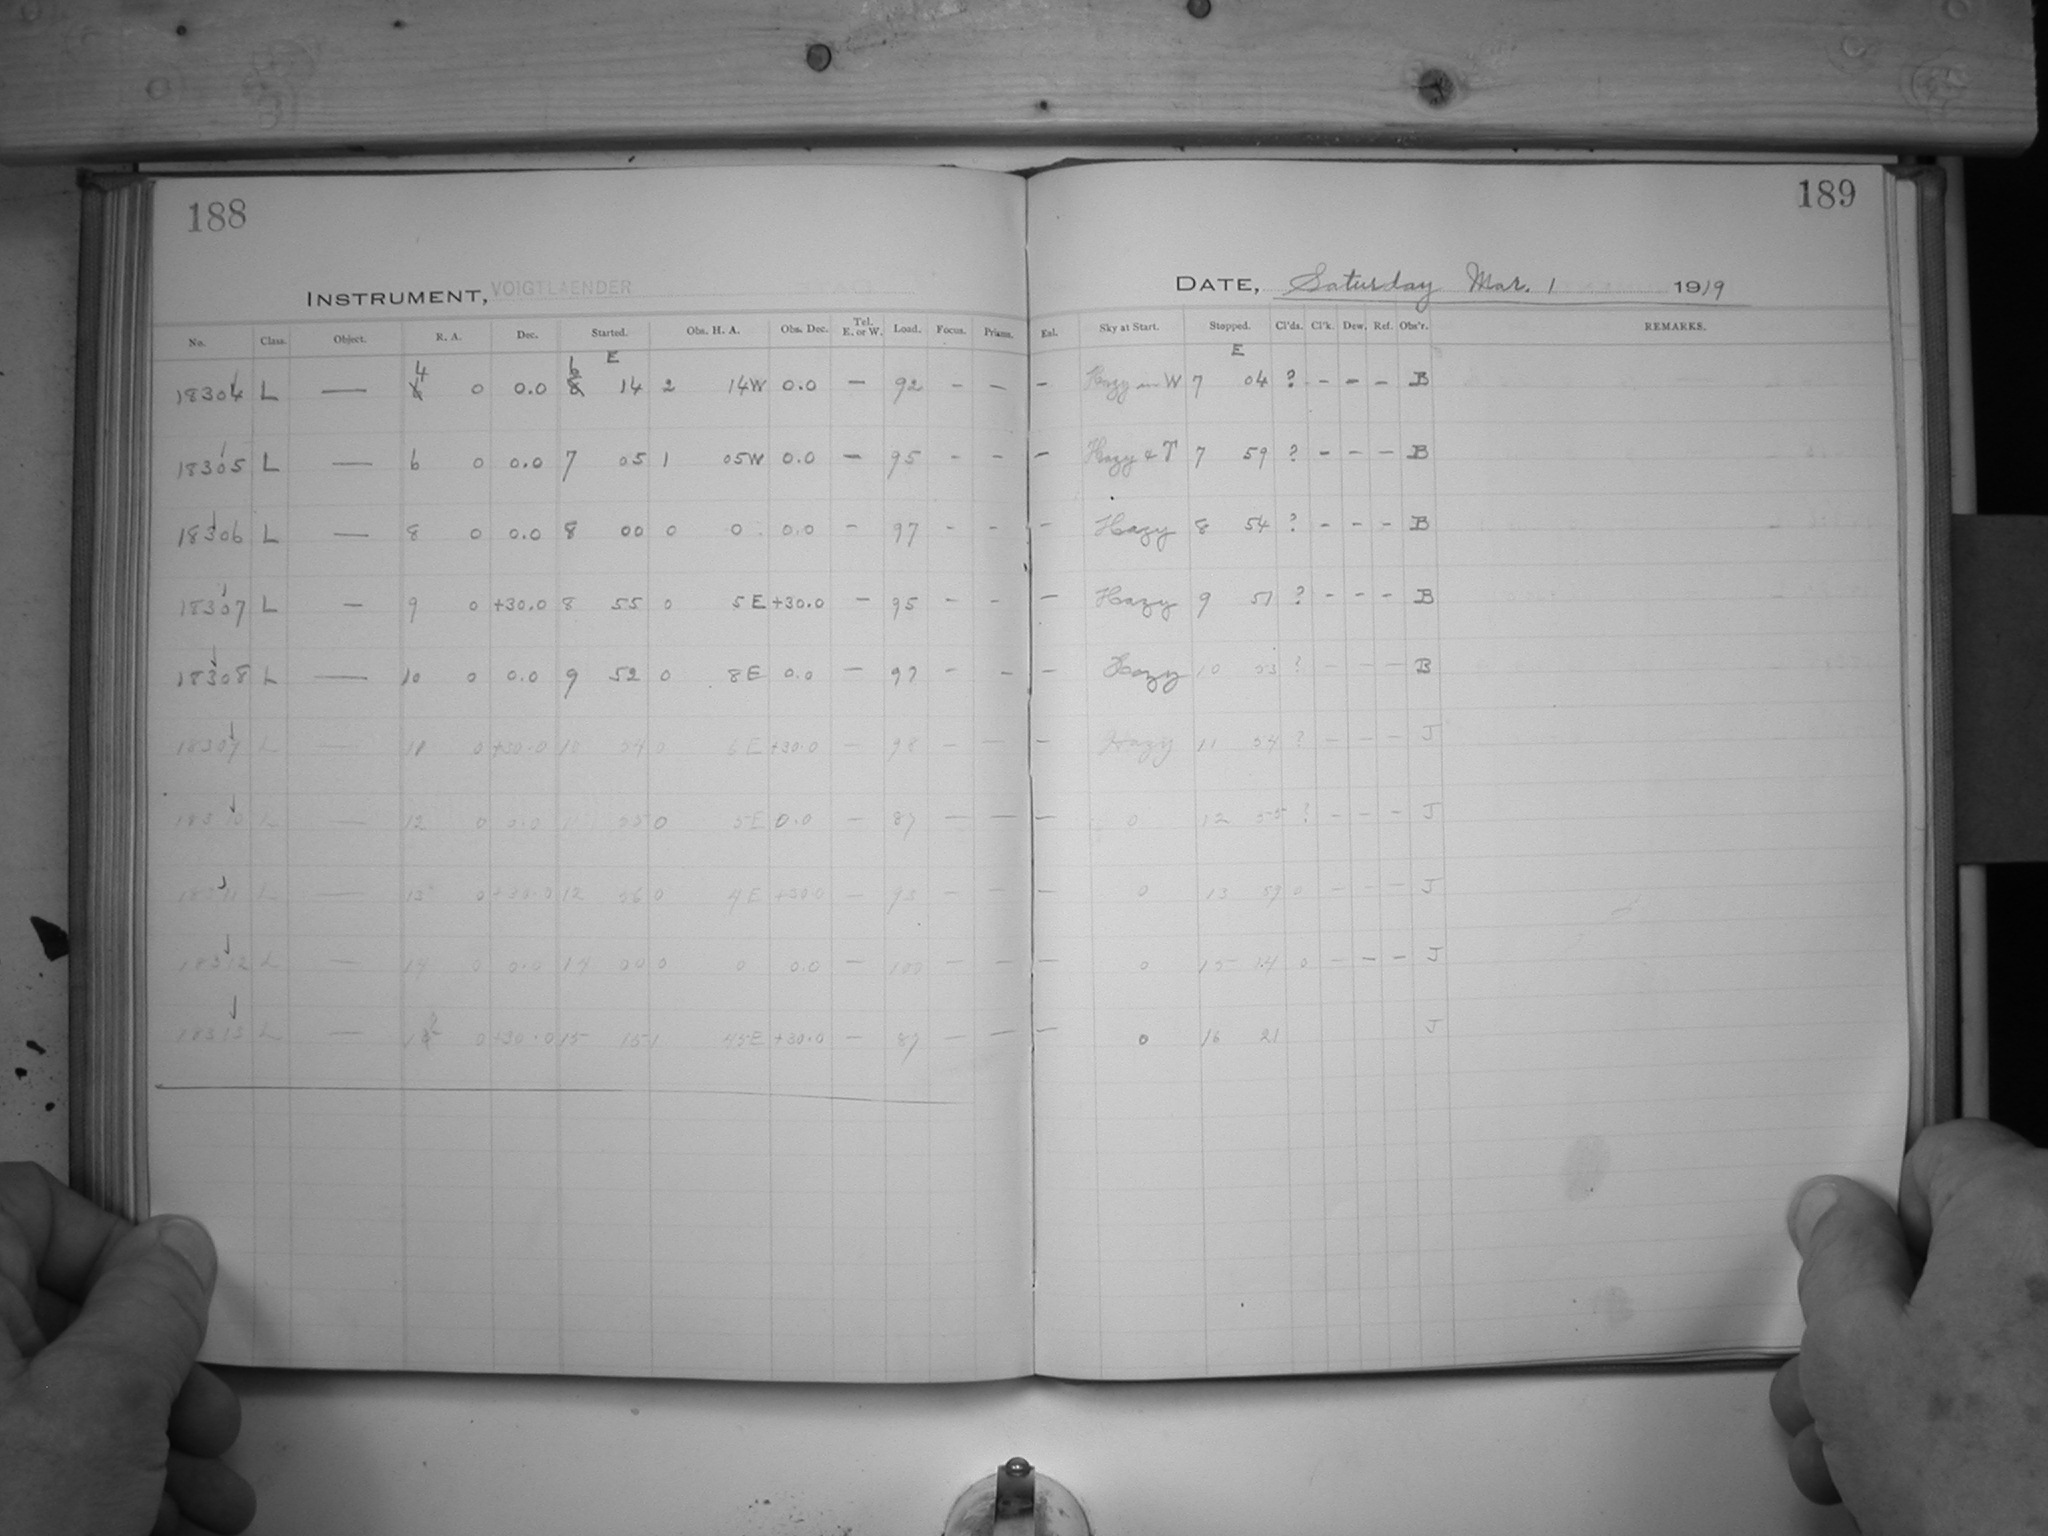 188
189
INSTRUMENT, VOIGTLAENDER
DATE, Saturday Mar. 1 1919
No. Class. Object. R. A. Dec. Started. Obs. H. A. Obs. Dec. Tel. E. or W. Load. Focus. Prisms. Enl. Sky at Start. Stopped. Cl'ds. Cl'k. Dew. Ref. Obs'r. REMARKS.
E E
18304 L — 4 0 0.0 6 14 2 14W 0.0 — 92 - - - Hazy in W 7 04 ? - - - B
18305 L — 6 0 0.0 7 05 1 05W 0.0 — 95 - - - Hazy & T 7 59 ? - - - B
18306 L — 8 0 0.0 8 00 0 0 0.0 - 97 - - - Hazy 8 54 ? - - - B
18307 L — 9 0 +30.0 8 55 0 5 E +30.0 — 95 - - - Hazy 9 51 ? - - - B
18308 L — 10 0 0.0 9 52 0 8 E 0.0 — 97 - - - Hazy 10 53 ? - - - B
L — 11 0 +30.0 10 54 0 6 E +30.0 — 98 - - - Hazy 11 54 ? - - - J
18310 L — 12 0 0.0 55 0 5 E 0.0 — 87 - - - 0 12 55 ? - - - J
18311 L — 13 0 +30.0 12 56 0 4 E +30.0 — 95 - - - 0 13 59 0 - - - J
18312 L — 14 0 0.0 14 00 0 0 0.0 — 100 - - - 0 15 14 0 - - - J
18313 L — 0 +30.0 15 15 1 45 E +30.0 — 87 - - - 0 16 21 J